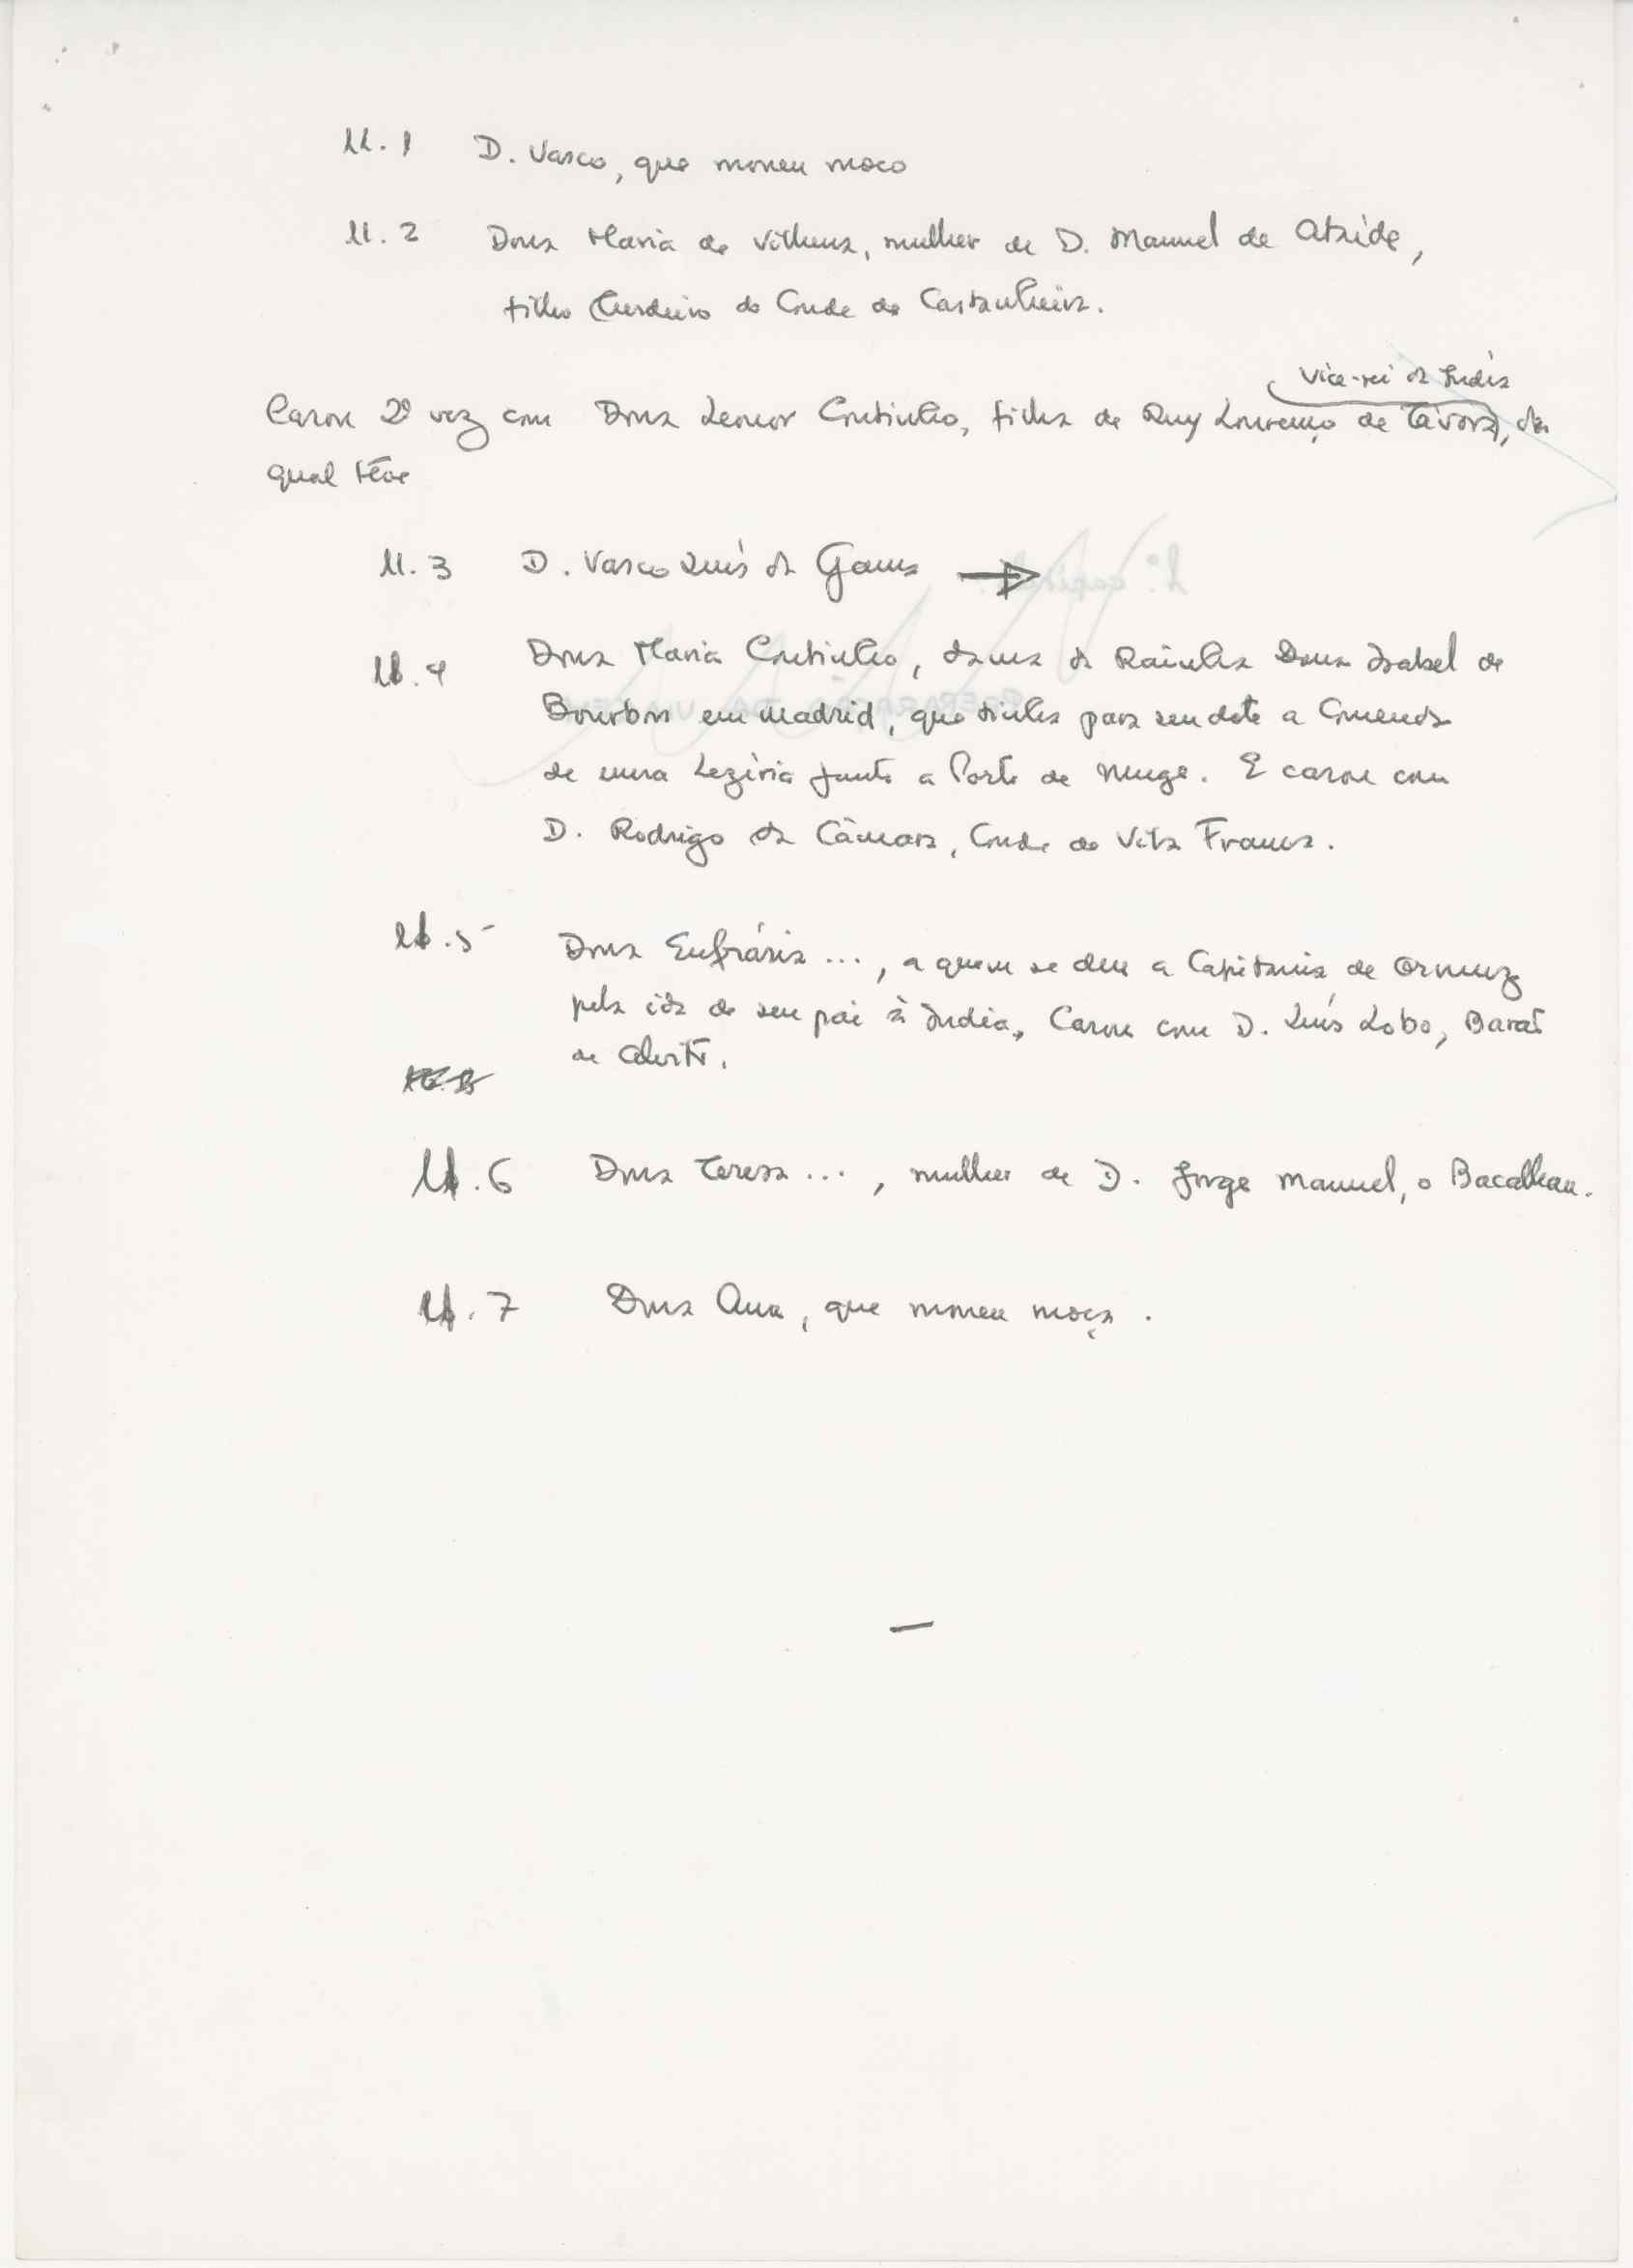 11.1 D. Vasco, que morreu moco
11.2 Dona Maria de Vilhena, mulher de D. Manuel de Ataide,
filho herdeiro do Conde da Castanheira.
Vice-rei da India
Casou 2ª vez com Dona Leonor Coutinho, filha de Ruy Lourenço de Távora, da
qual têve
11.3 D. Vasco Luís da Gama →
11.4 Dona Maria Coutinho, dama da Rainha Dona Isabel de
Bourbon em Madrid, que tinha para seu dote a Comenda
de uma Lezíria junto a Porto de Muge. E casou com
D. Rodrigo da Câmara, Conde de Vila Franca.
11.5 Dona Eufrásia ..., a quem se deu a Capitania de Ormuz
pela ida de seu pai à India, Casou com D. Luís Lobo, Barão
de Alvito.
11.6 Dona Teresa ..., mulher de D. Jorge Manuel, o Bacalhau.
11.7 Dona Ana, que morreu moça.